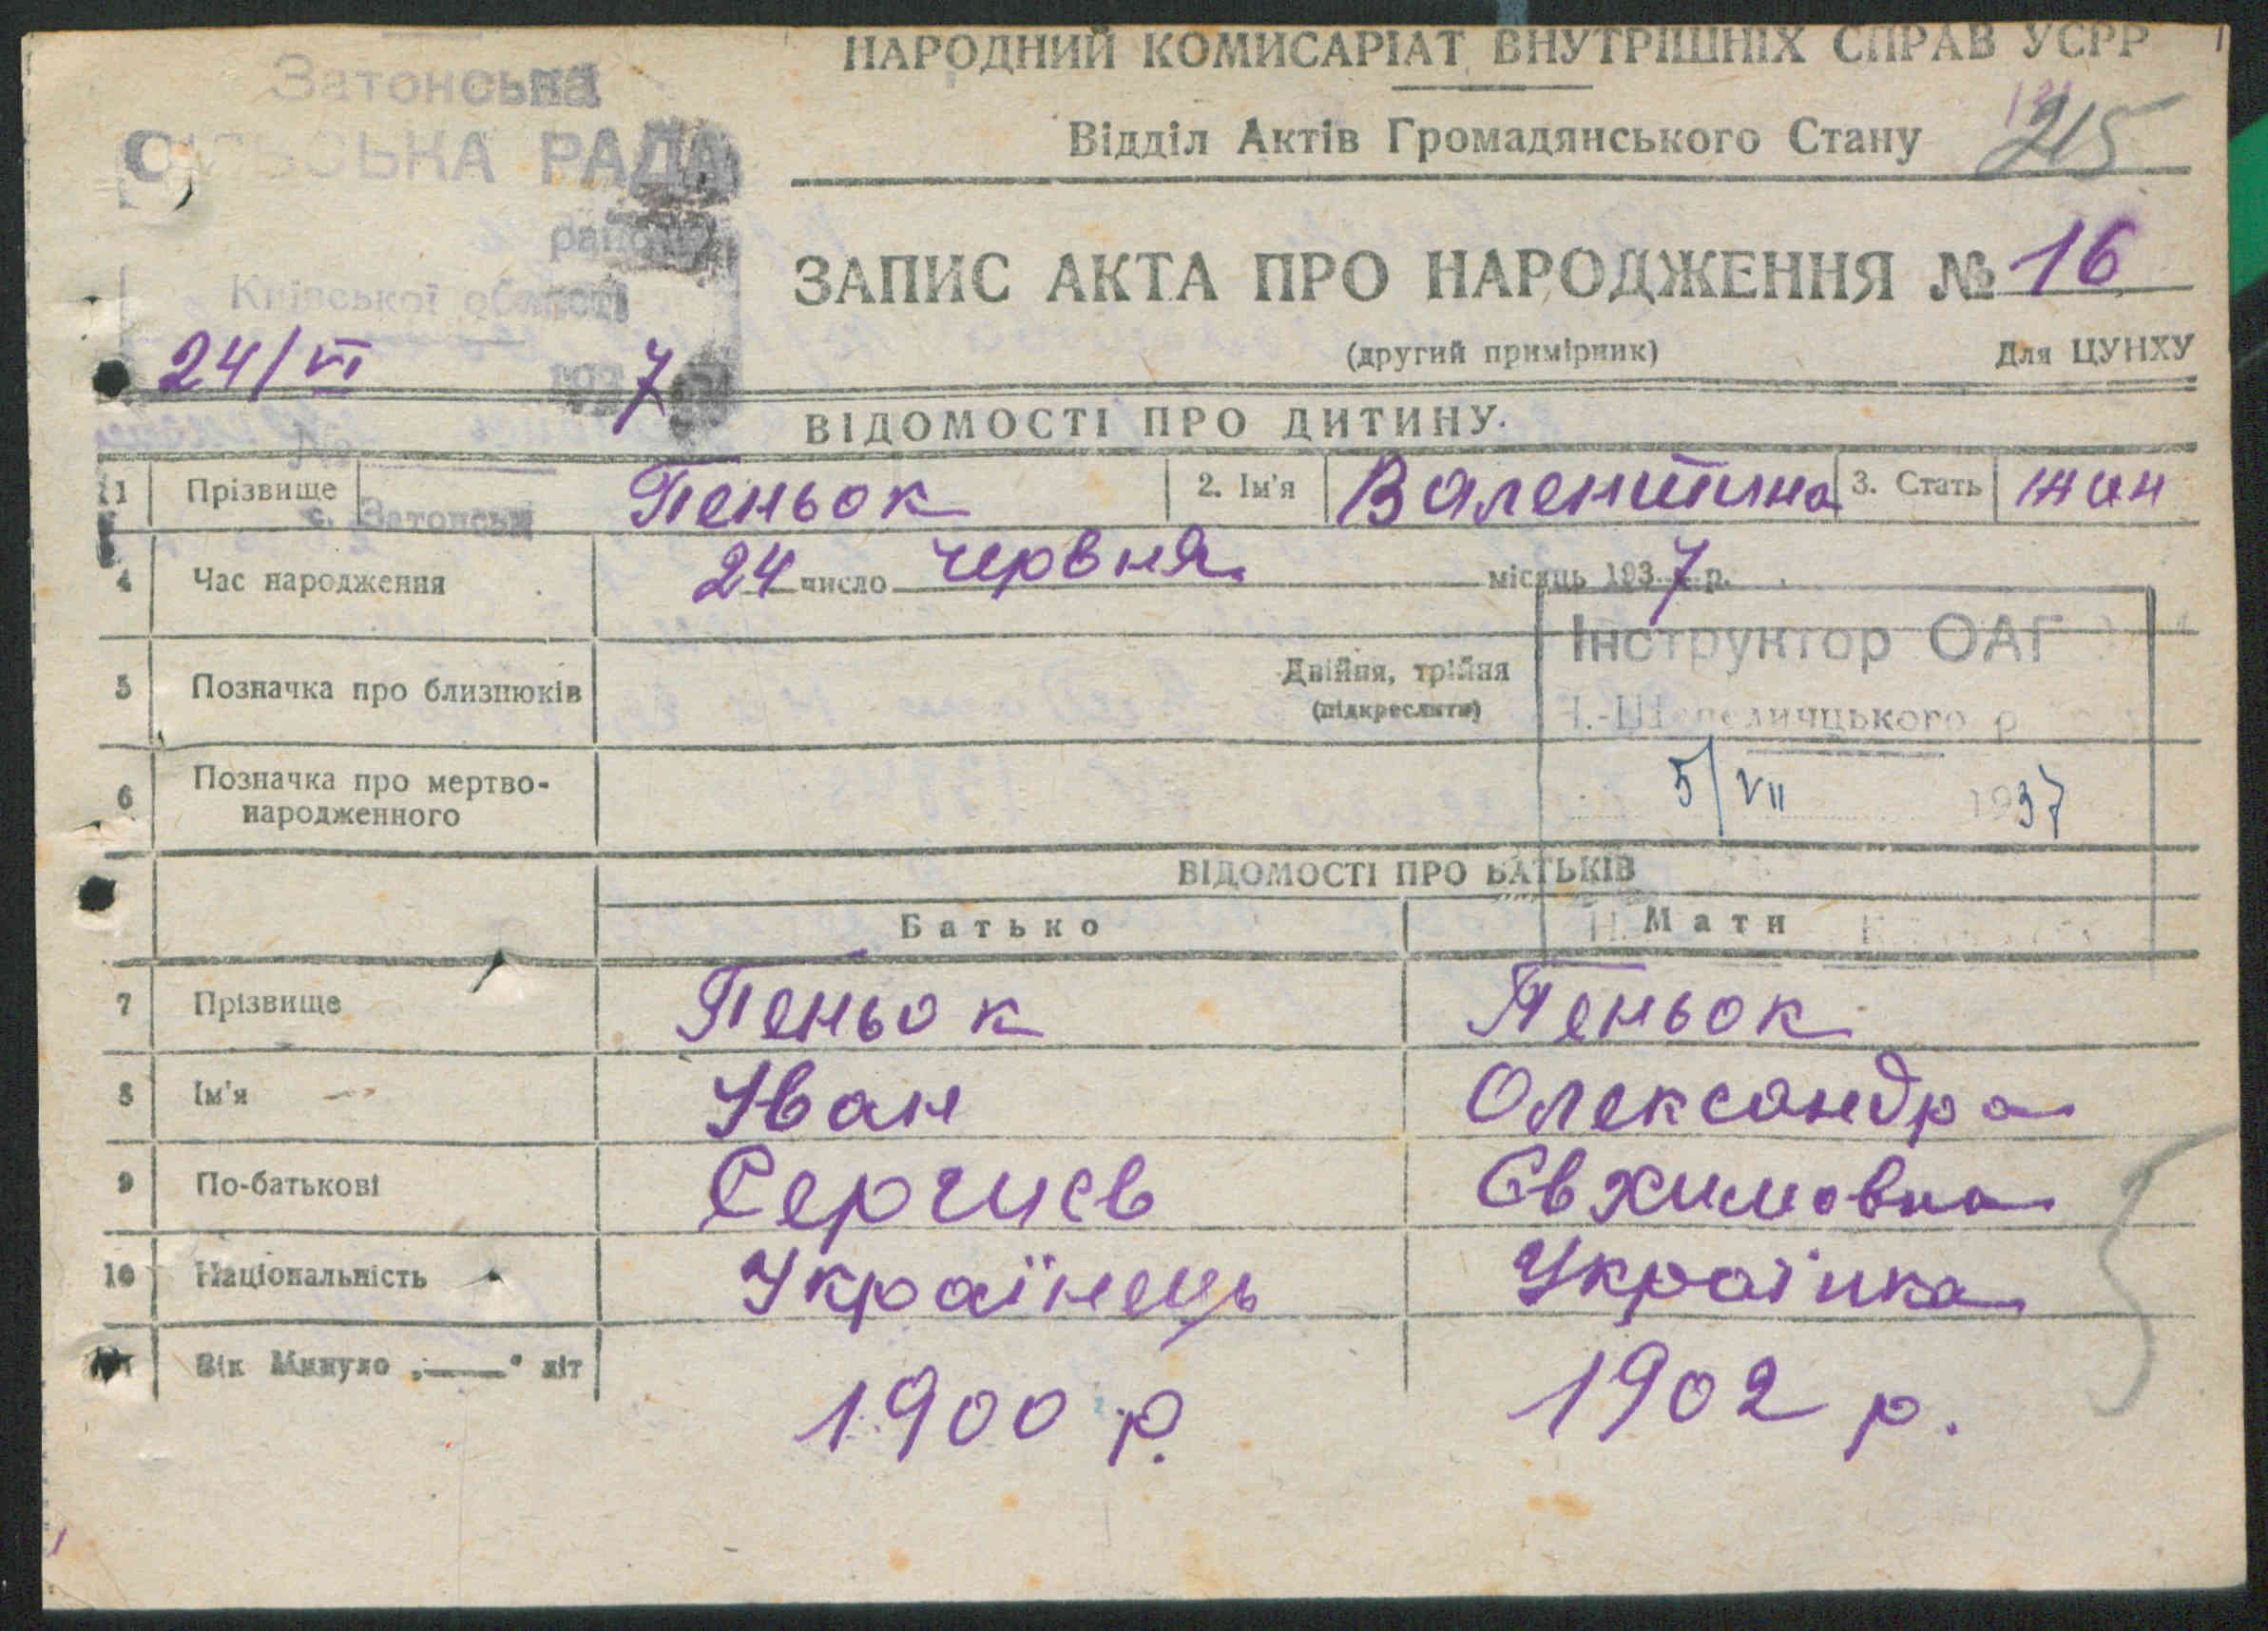 НАРОДНИЙ КОМИСАРІАТ ВНУТРІШНІХ СПРАВ УСРР
Затонська
СІЛЬСЬКА РАДА
району
Київської області
24/VI 1937
№
с. Затонськ
Відділ Актів Громадянського Стану
215
ЗАПИС АКТА ПРО НАРОДЖЕННЯ № 16
(другий примірник) Для ЦУНХУ
ВІДОМОСТІ ПРО ДИТИНУ.
1 Прізвище Пеньок 2. Ім'я Валентина 3. Стать жін
4 Час народження 24 число червня місяць 1937 р.
Інструктор ОАГС
5 Позначка про близнюків Двійня, трійня
(підкреслити)
6 Позначка про мертво-
народженного
5/VII 1937
ВІДОМОСТІ ПРО БАТЬКІВ
Батько Мати
7 Прізвище Пеньок Пеньок
8 Ім'я Іван Олександра
9 По-батькові Сергиєв Євхимовна
10 Національність Українець Українка
11 Вік Минуло „——" літ 1900 р. 1902 р.